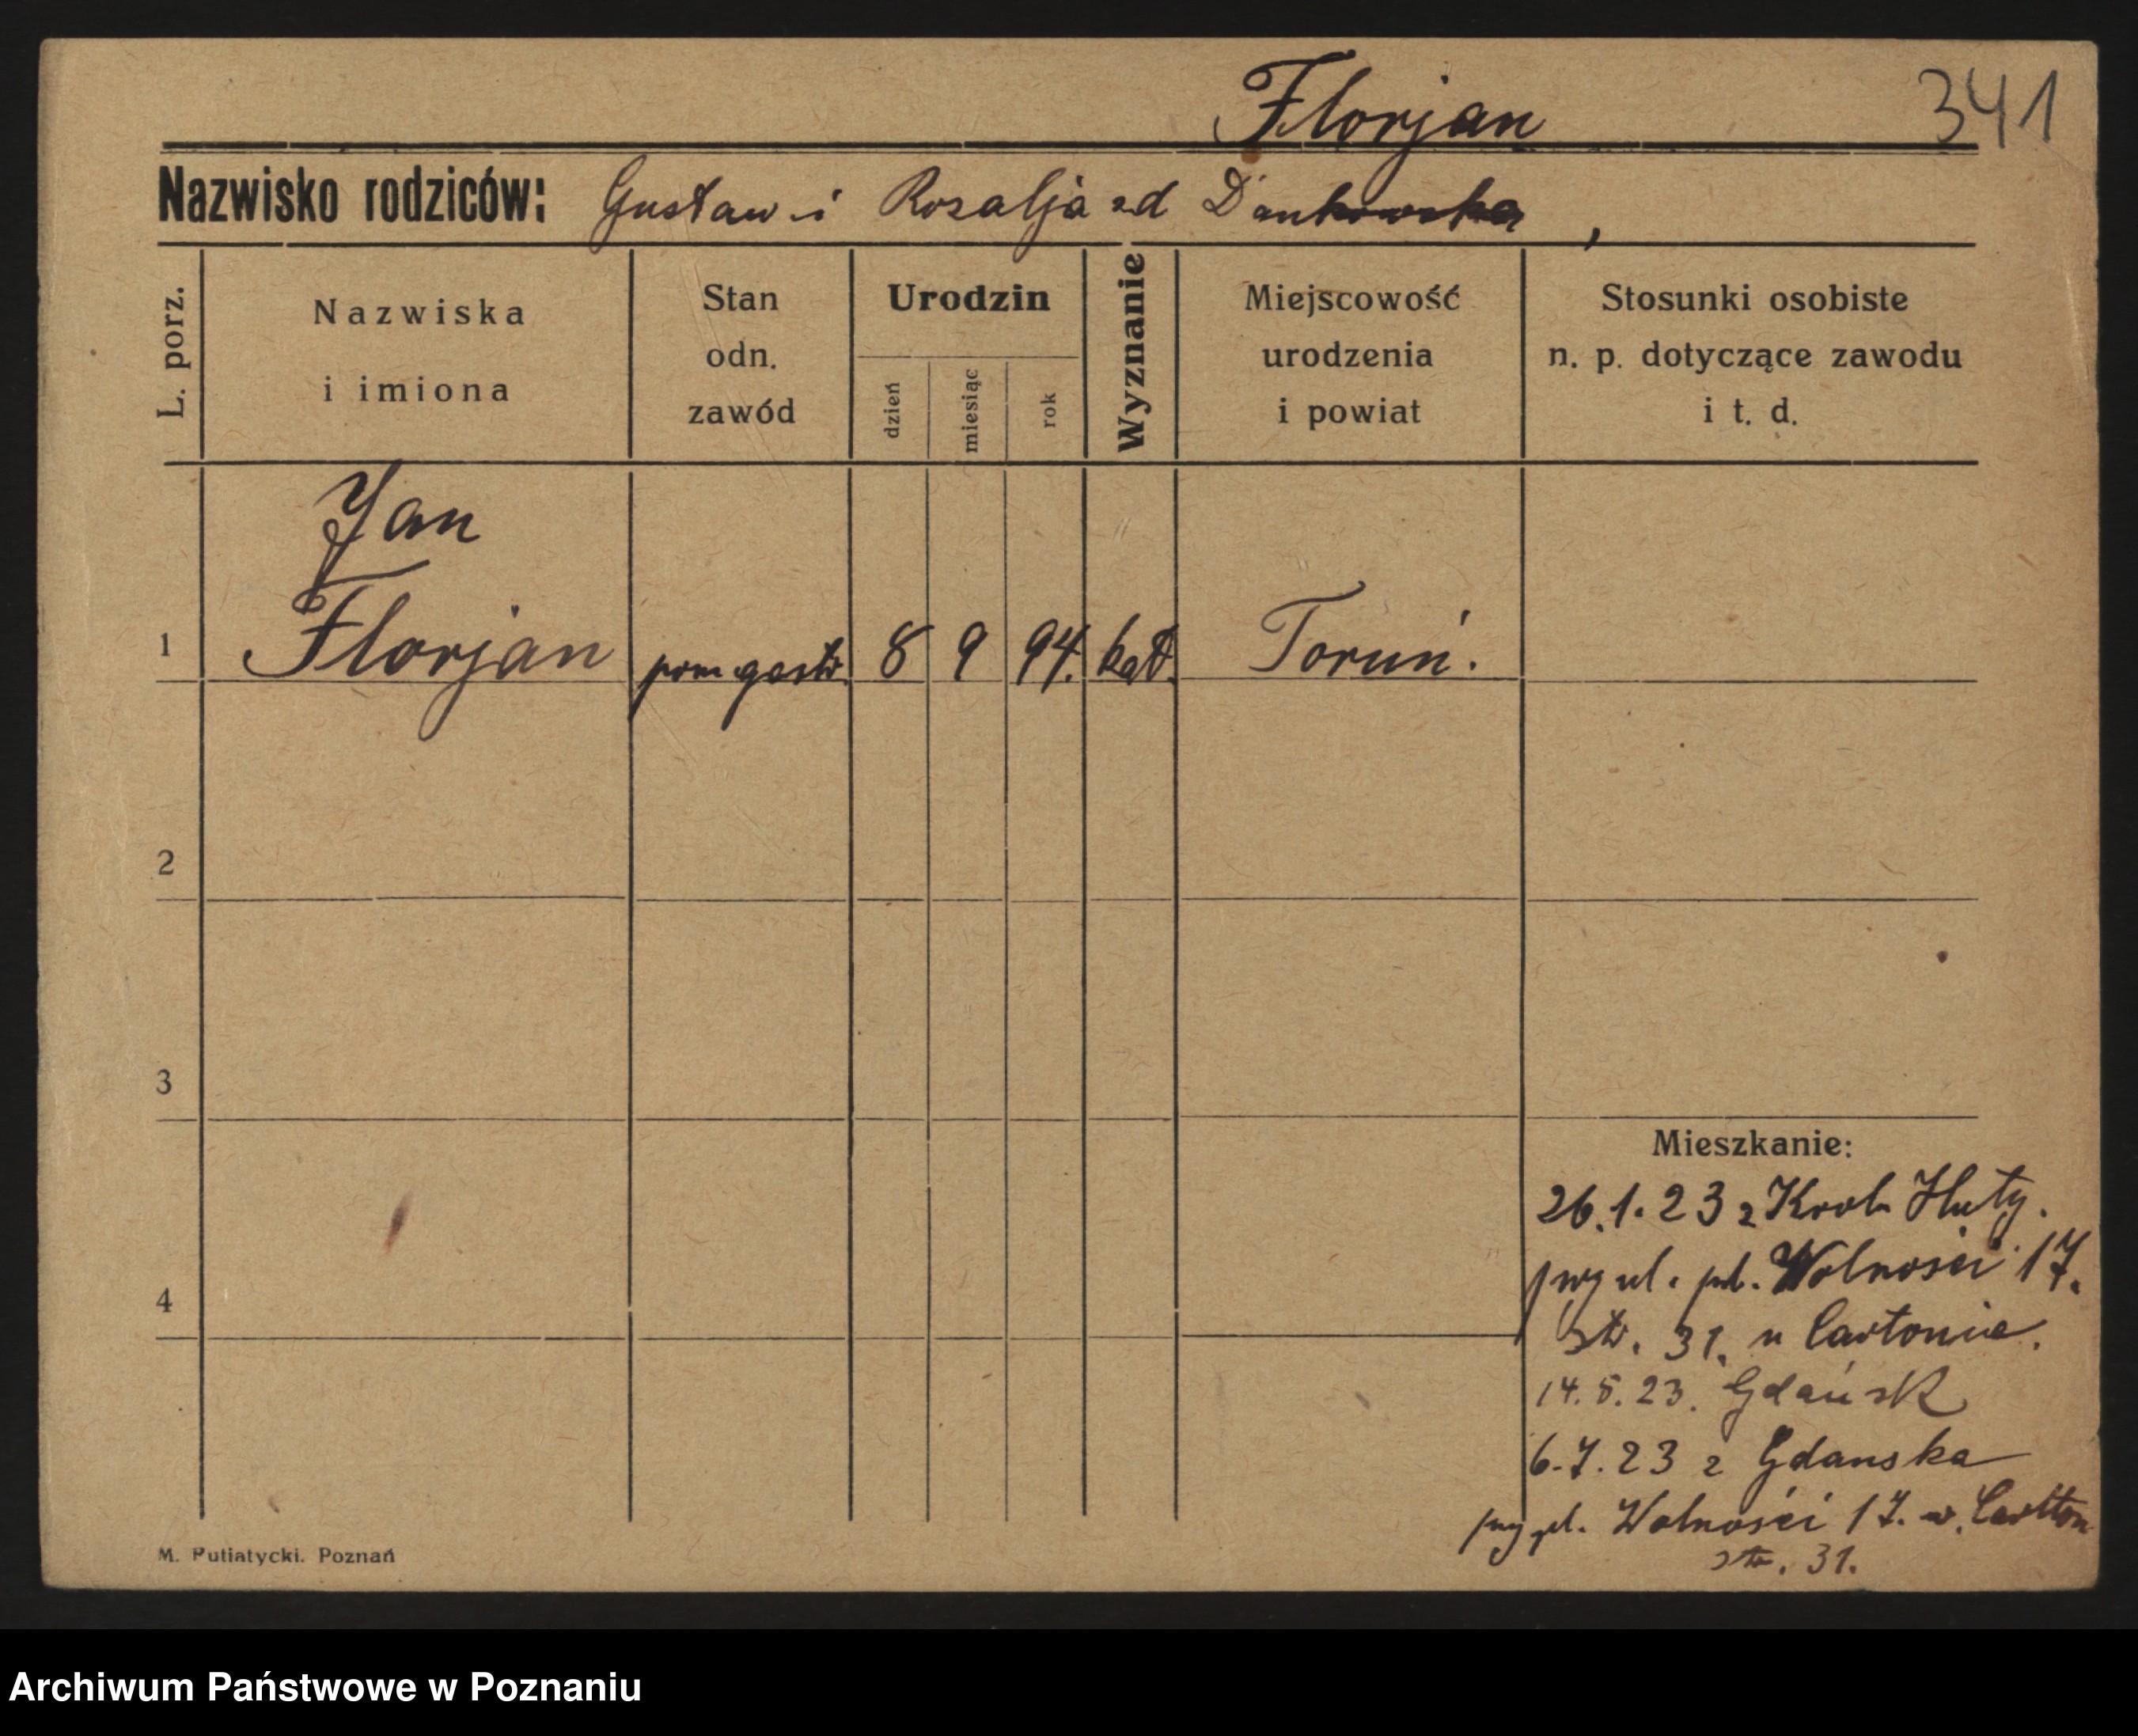 Florjan 341
Nazwisko rodziców: Gustaw i Rozalja zd Dankowska,
L. porz.
Nazwiska
i imiona
Stan
odn.
zawód
Urodzin
dzień
miesiąc
rok
Wyznanie
Miejscowość
urodzenia
i powiat
Stosunki osobiste
n. p. dotyczące zawodu
i t. d.
Jan
1 Florjan pom gastr. 8 9 94. kat. Toruń.
2
3
4
Mieszkanie:
26.1.23 z Krol. Huty.
przy ul. pl. Wolności 17.
31. u
14.5.23. Gdańsk
6.7.23 z Gdanska
przy pl. Wolności 17. w. Carlton
31.
M. Putiatycki. Poznań
Archiwum Państwowe w Poznaniu